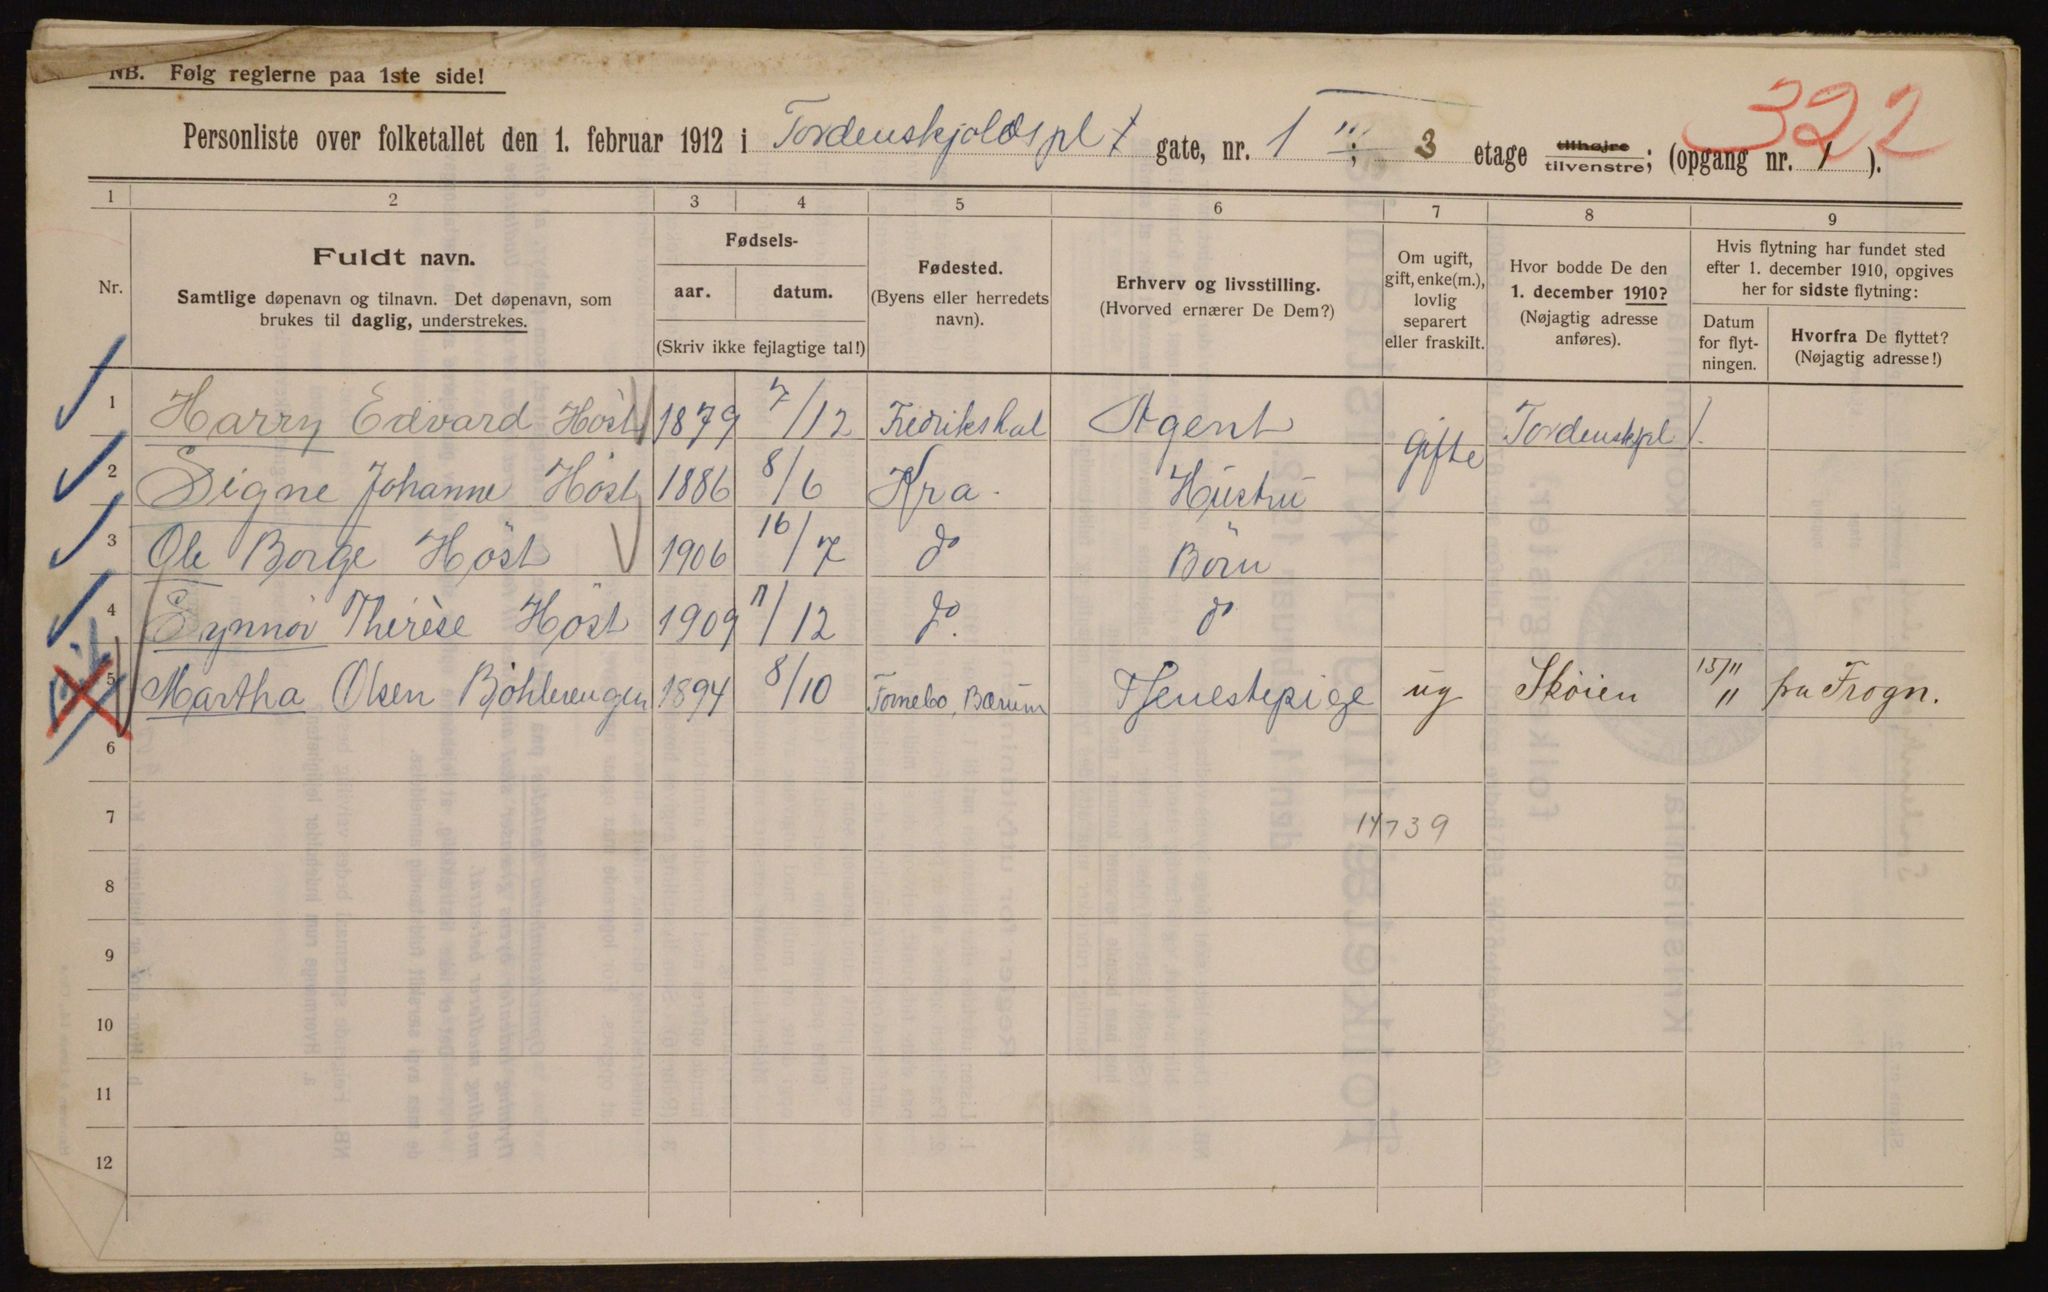 NB. Følg reglerne paa 1ste side!
322
Personliste over folketallet den 1. februar 1912 i Tordenskjolds pl gate, nr. 1 III; 3 etage tilhøjre tilvenstre; (opgang nr. 1).
1 2 3 4 5 6 7 8 9
Nr.
Fuldt navn.
Samtlige døpenavn og tilnavn. Det døpenavn, som
brukes til daglig, understrekes.
Fødsels-
aar. datum.
(Skriv ikke fejlagtige tal!)
Fødested.
(Byens eller herredets
navn).
Erhverv og livsstilling.
(Hvorved ernærer De Dem?)
Om ugift,
gift, enke(m.),
lovlig
separert
eller fraskilt.
Hvor bodde De den
1. december 1910?
(Nøjagtig adresse
anføres).
Hvis flytning har fundet sted
efter 1. december 1910, opgives
her for sidste flytning:
Datum
for flyt-
ningen.
Hvorfra De flyttet?
(Nøjagtig adresse!)
1 Harry Edvard Høst 1879 7/12 Fredrikshal Agent Gifte Tordenskjpl 1.
2 Signe Johanne Høst 1886 8/6 Kra. Hustru
3 Ole Borge Høst 1906 16/7 do Børn
4 Synnøv Thérèse Høst 1909 11/12 do. do
5 Martha Olsen Bjøhlerengen 1894 8/10 Fornebo, Bærum Tjenestepige ug Skøien 15/11 11 fra Frogn.
6
7 14739
8
9
10
11
12